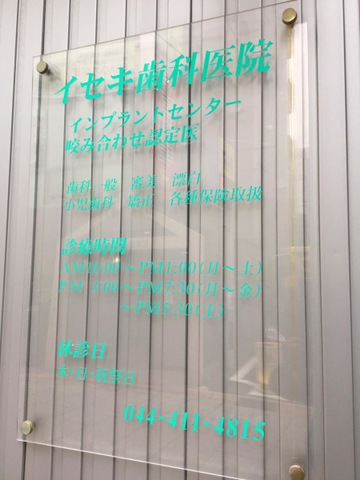 イセキ歯科医院
インプラントセンター
咬み合わせ認定医
歯科一般 審美 漂白
小児歯科 矯正 各種保険取扱
診療時間
AM10:00～PM1:00(月～土)
PM 3:00～PM7:30(月～金)
～PM5:30(土)
休診日
木・日・祝祭日
044-411-4815